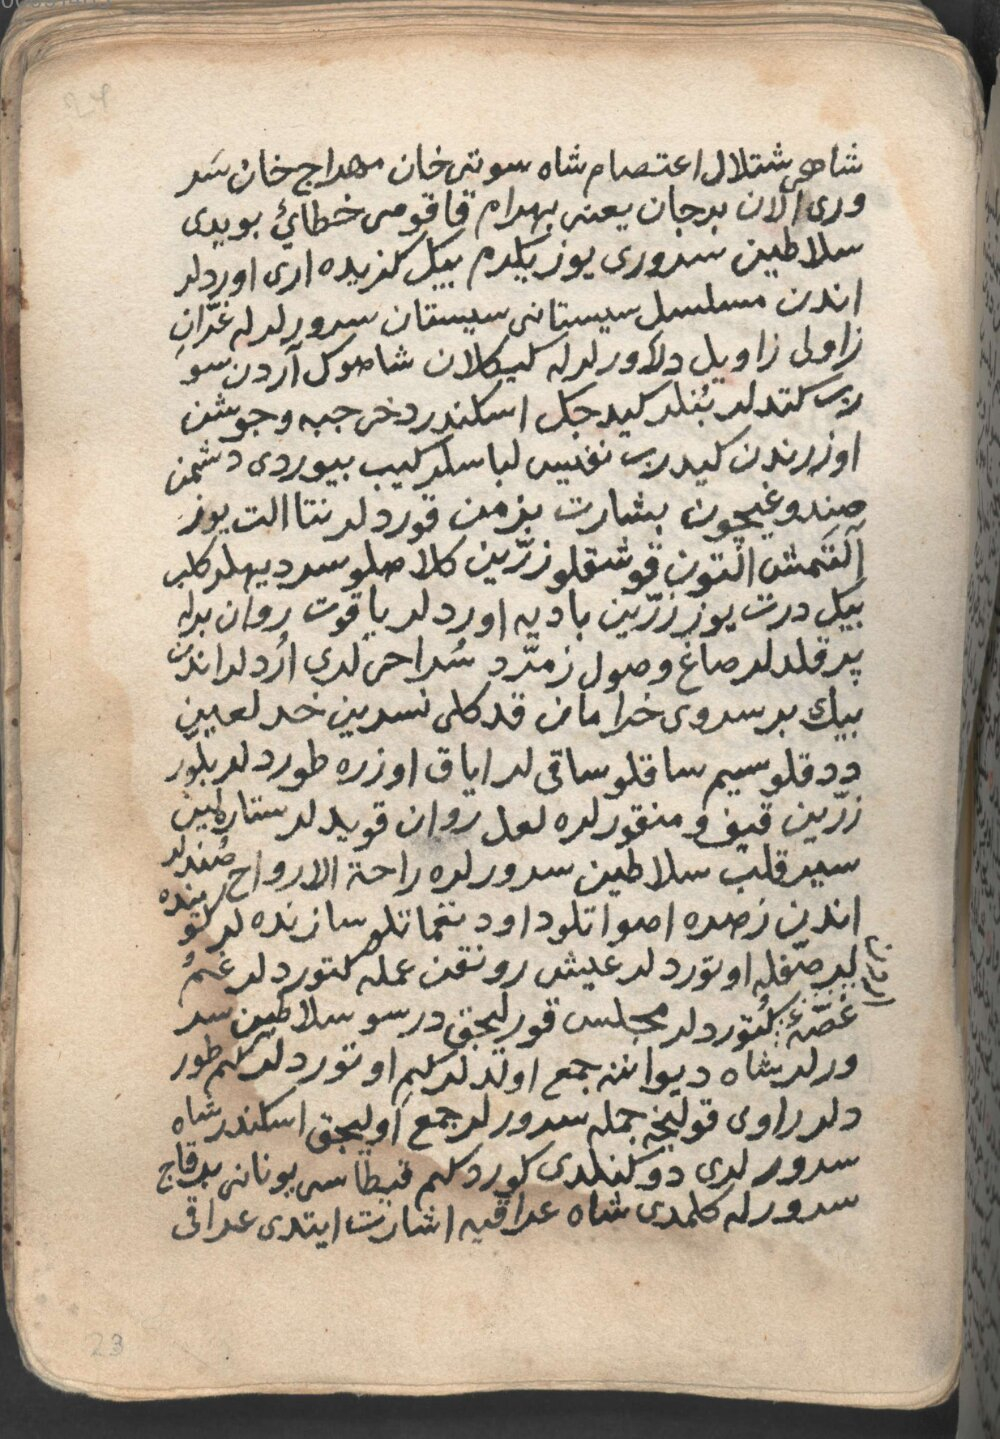 24
شاهی شتلال اعتصام شاه سوتی خان مهراج خان سر
وری آلان برجان یعنی بهرام قاقومی خطائی بویدی
سلاطین سروری یوز یکرم بیک کزیده اری اوردلر
اندن مسلسل سیستانی سیستان سرورلرله غرّان
زاولی زاویل دلاورلرله کیکلان شاهوک آردن سو
رب کتدلر بُنلر کیدجک اسکندر دخی جبه و جوشن
اوزرندن کیدرب نفیس لباسلر کیب بیوردی دشمن
صندوغیچون بشارت بزمن قوردلر نتا الت یوز
آلتمش التون قوشقلو زرّین کلاهلو سرد یهلر کلب
بیک درت یوز زرّین بادیه اوردلر یاقوت روان برله
پر قلدلر صاغ وصول زمرّد سُراحی لری ارُدلر اندن
بیک بر سروی خرامان قد کلی نسرین خد لعلین
ددقلو سیم ساقلو ساقی لر ایاق اوزره طوردلر بلّور
زرّین قیف و منقورلره لعل روان قویدلر ستاره لمین
سیر قلب سلاطین سرورلره راحة الارواح صُندلر
اندن زهره اصواتلو داود نغماتلو سازنده لر کوربنده
لر صفله اوتوردلر عیش رونقن عمله کتوردلر غمُ
غصّهٔ کُتوردلر مجلس قورلیجق درسو سلاطین سر
ورلر شاه دیواننه جمع اولدلر کلم اوتوردلر کلم طور
دلر راوی قولیجه جمله سرورلر جمع اولیجق اسکندر شاه
سرورلری دوکنلدی کوردکلم قیطاسی یونانی برقاج
سرورله کلمدی شاه عراقیه اشارت ایتدی عراقی
23